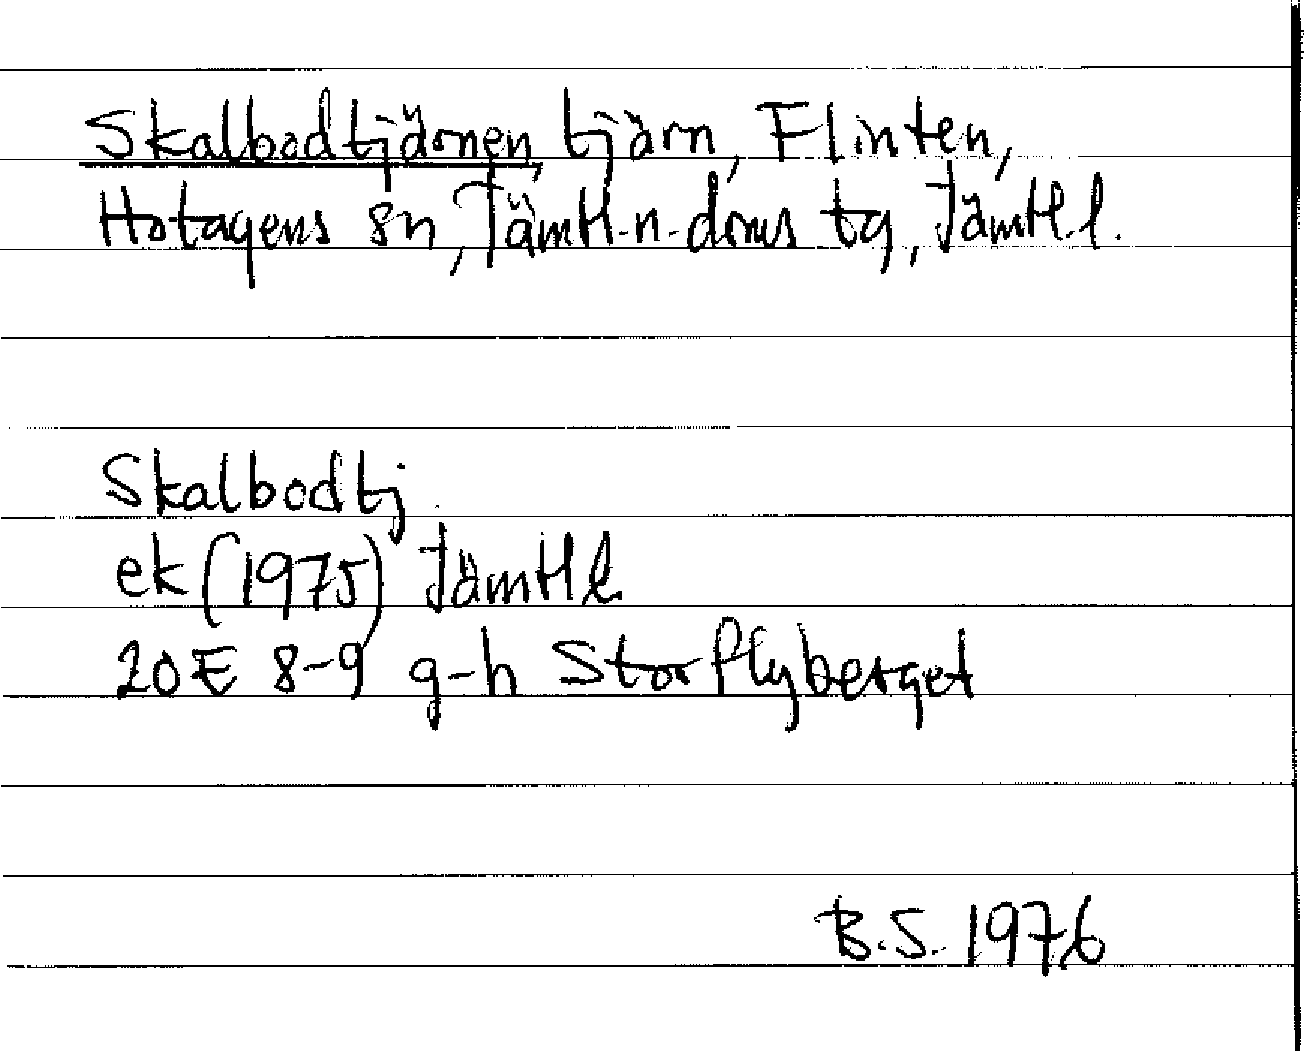 Skalbodtjärnen, tjärn, Flinten,
Hotagens sn, Jämtl.n.doms tg, Jämtl.l.
Skalbodtj.
ek (1975) Jämtl l
20E 8-9 g-h Storflyberget
B.S. 1976